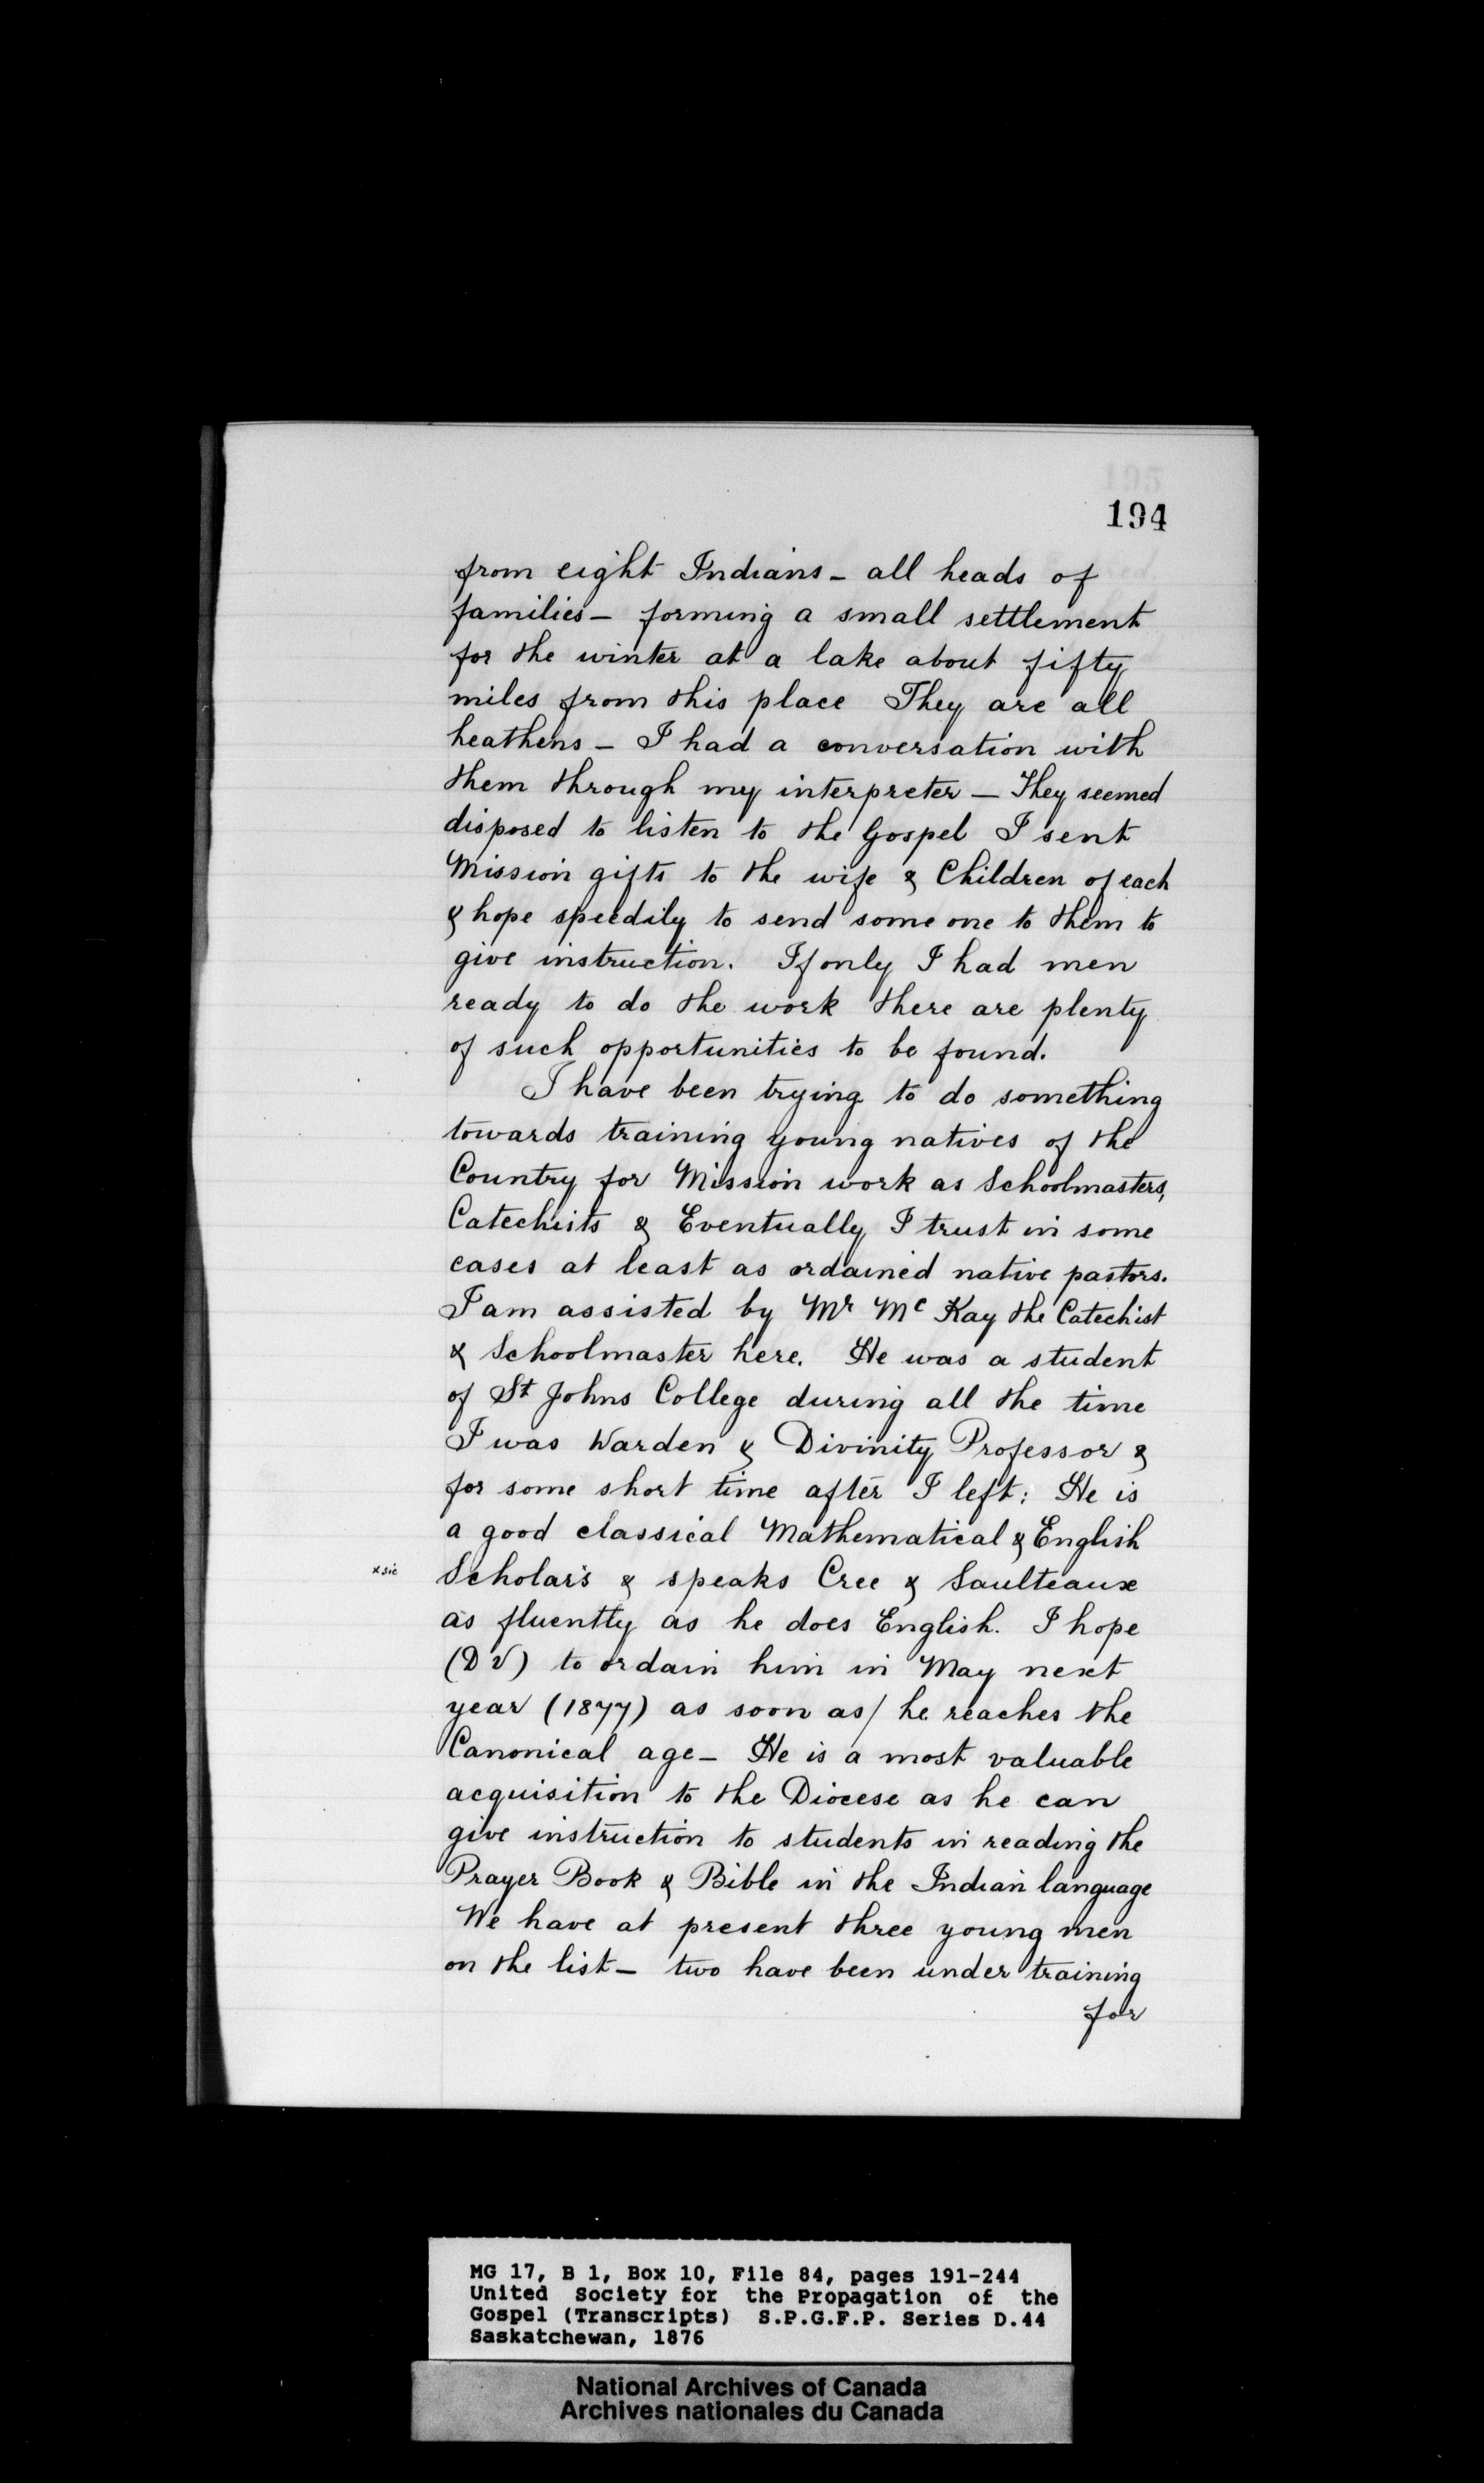 195
194
from eight Indians - all heads of
families - forming a small settlement
for the winter at a lake about fifty
miles from this place They are all
heathens - I had a conversation with
them through my interpreter - They seemed
disposed to listen to the Gospel I sent
Mission gifts to the wife & Children of each
& hope speedily to send some one to them to
give instruction. If only I had men
ready to do the work there are plenty
of such opportunities to be found.
I have been trying to do something
towards training young natives of the
Country for Mission work as Schoolmasters,
Catechists & Eventually I trust in some
cases at least as ordained native pastors.
I am assisted by Mr Mc Kay the Catechist
& Schoolmaster here. He was a student
of St Johns College during all the time
I was Warden & Divinity Professor &
for some short time after I left: He is
a good classical Mathematical & English
x sic Scholar's & speaks Cree & Saulteaux
as fluently as he does English. I hope
(D V) to ordain him in May next
year (1877) as soon as/ he reaches the
Canonical age - He is a most valuable
acquisition to the Diocese as he can
give instruction to students in reading the
Prayer Book & Bible in the Indian language
We have at present three young men
on the list - two have been under training
for
MG 17, B 1, Box 10, File 84, pages 191-244
United Society for the Propagation of the
Gospel (Transcripts) S.P.G.F.P. Series D.44
Saskatchewan, 1876
National Archives of Canada
Archives nationales du Canada